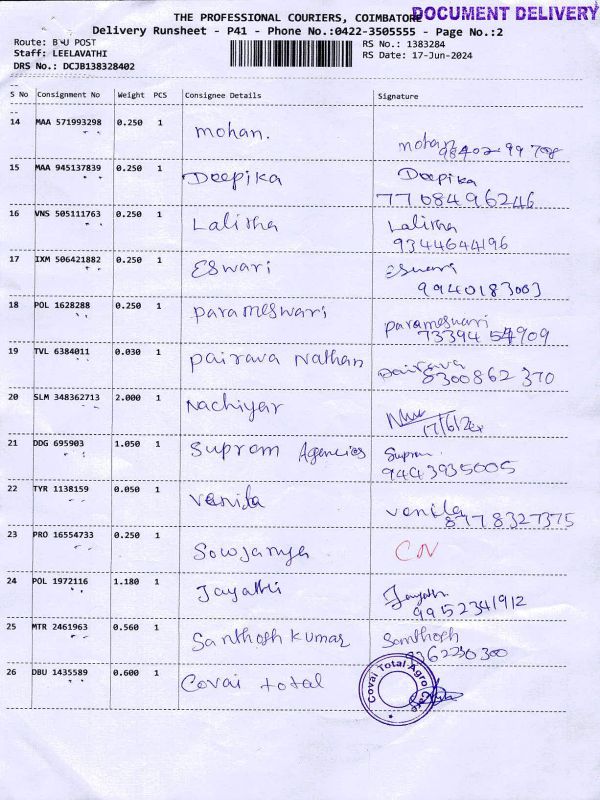 THE PROFESSIONAL COURIERS, COIMBATORE
DOCUMENT DELIVERY
Delivery Runsheet - P41 - Phone No.:0422-3505555 - Page No.:2
Route: POST
Staff: LEELAVATHI
DRS No.: DCJB138328402
RS No.: 1383284
RS Date: 17-Jun-2024
S No Consignment No Weight PCS Consignee Details Signature
14 MAA 571993298 0.250 1 Mohan. Mohan
98402 99 708
15 MAA 945137839 0.250 1 Deepika Deepika
7708496246
16 VNS 505111763 0.250 1 Lalitha Lalitha
9344644196
17 IXM 506421882 0.250 1 Eswari Eswari
9940183003
18 POL 1628288 0.250 1 Parameswari Parameswari
73394 54909
19 TVL 6384011 0.030 1 Pairava Nathan Pairava
8300862 370
20 SLM 348362713 2.000 1 Nachiyar
17/6/24
21 DDG 695903 1.050 1 Suprom Agencies Suprom
9443935005
22 TYR 1138159 0.050 1 Vanila Vanila
8778327375
23 PRO 16554733 0.250 1 Sowjanya CN
24 POL 1972116 1.180 1 Jayathi Jayathi
9952341912
25 MTR 2461963 0.560 1 Santhosh Kumar Santhosh
9362230300
26 DBU 1435589 0.600 1 Covai total
Covai Total Agro